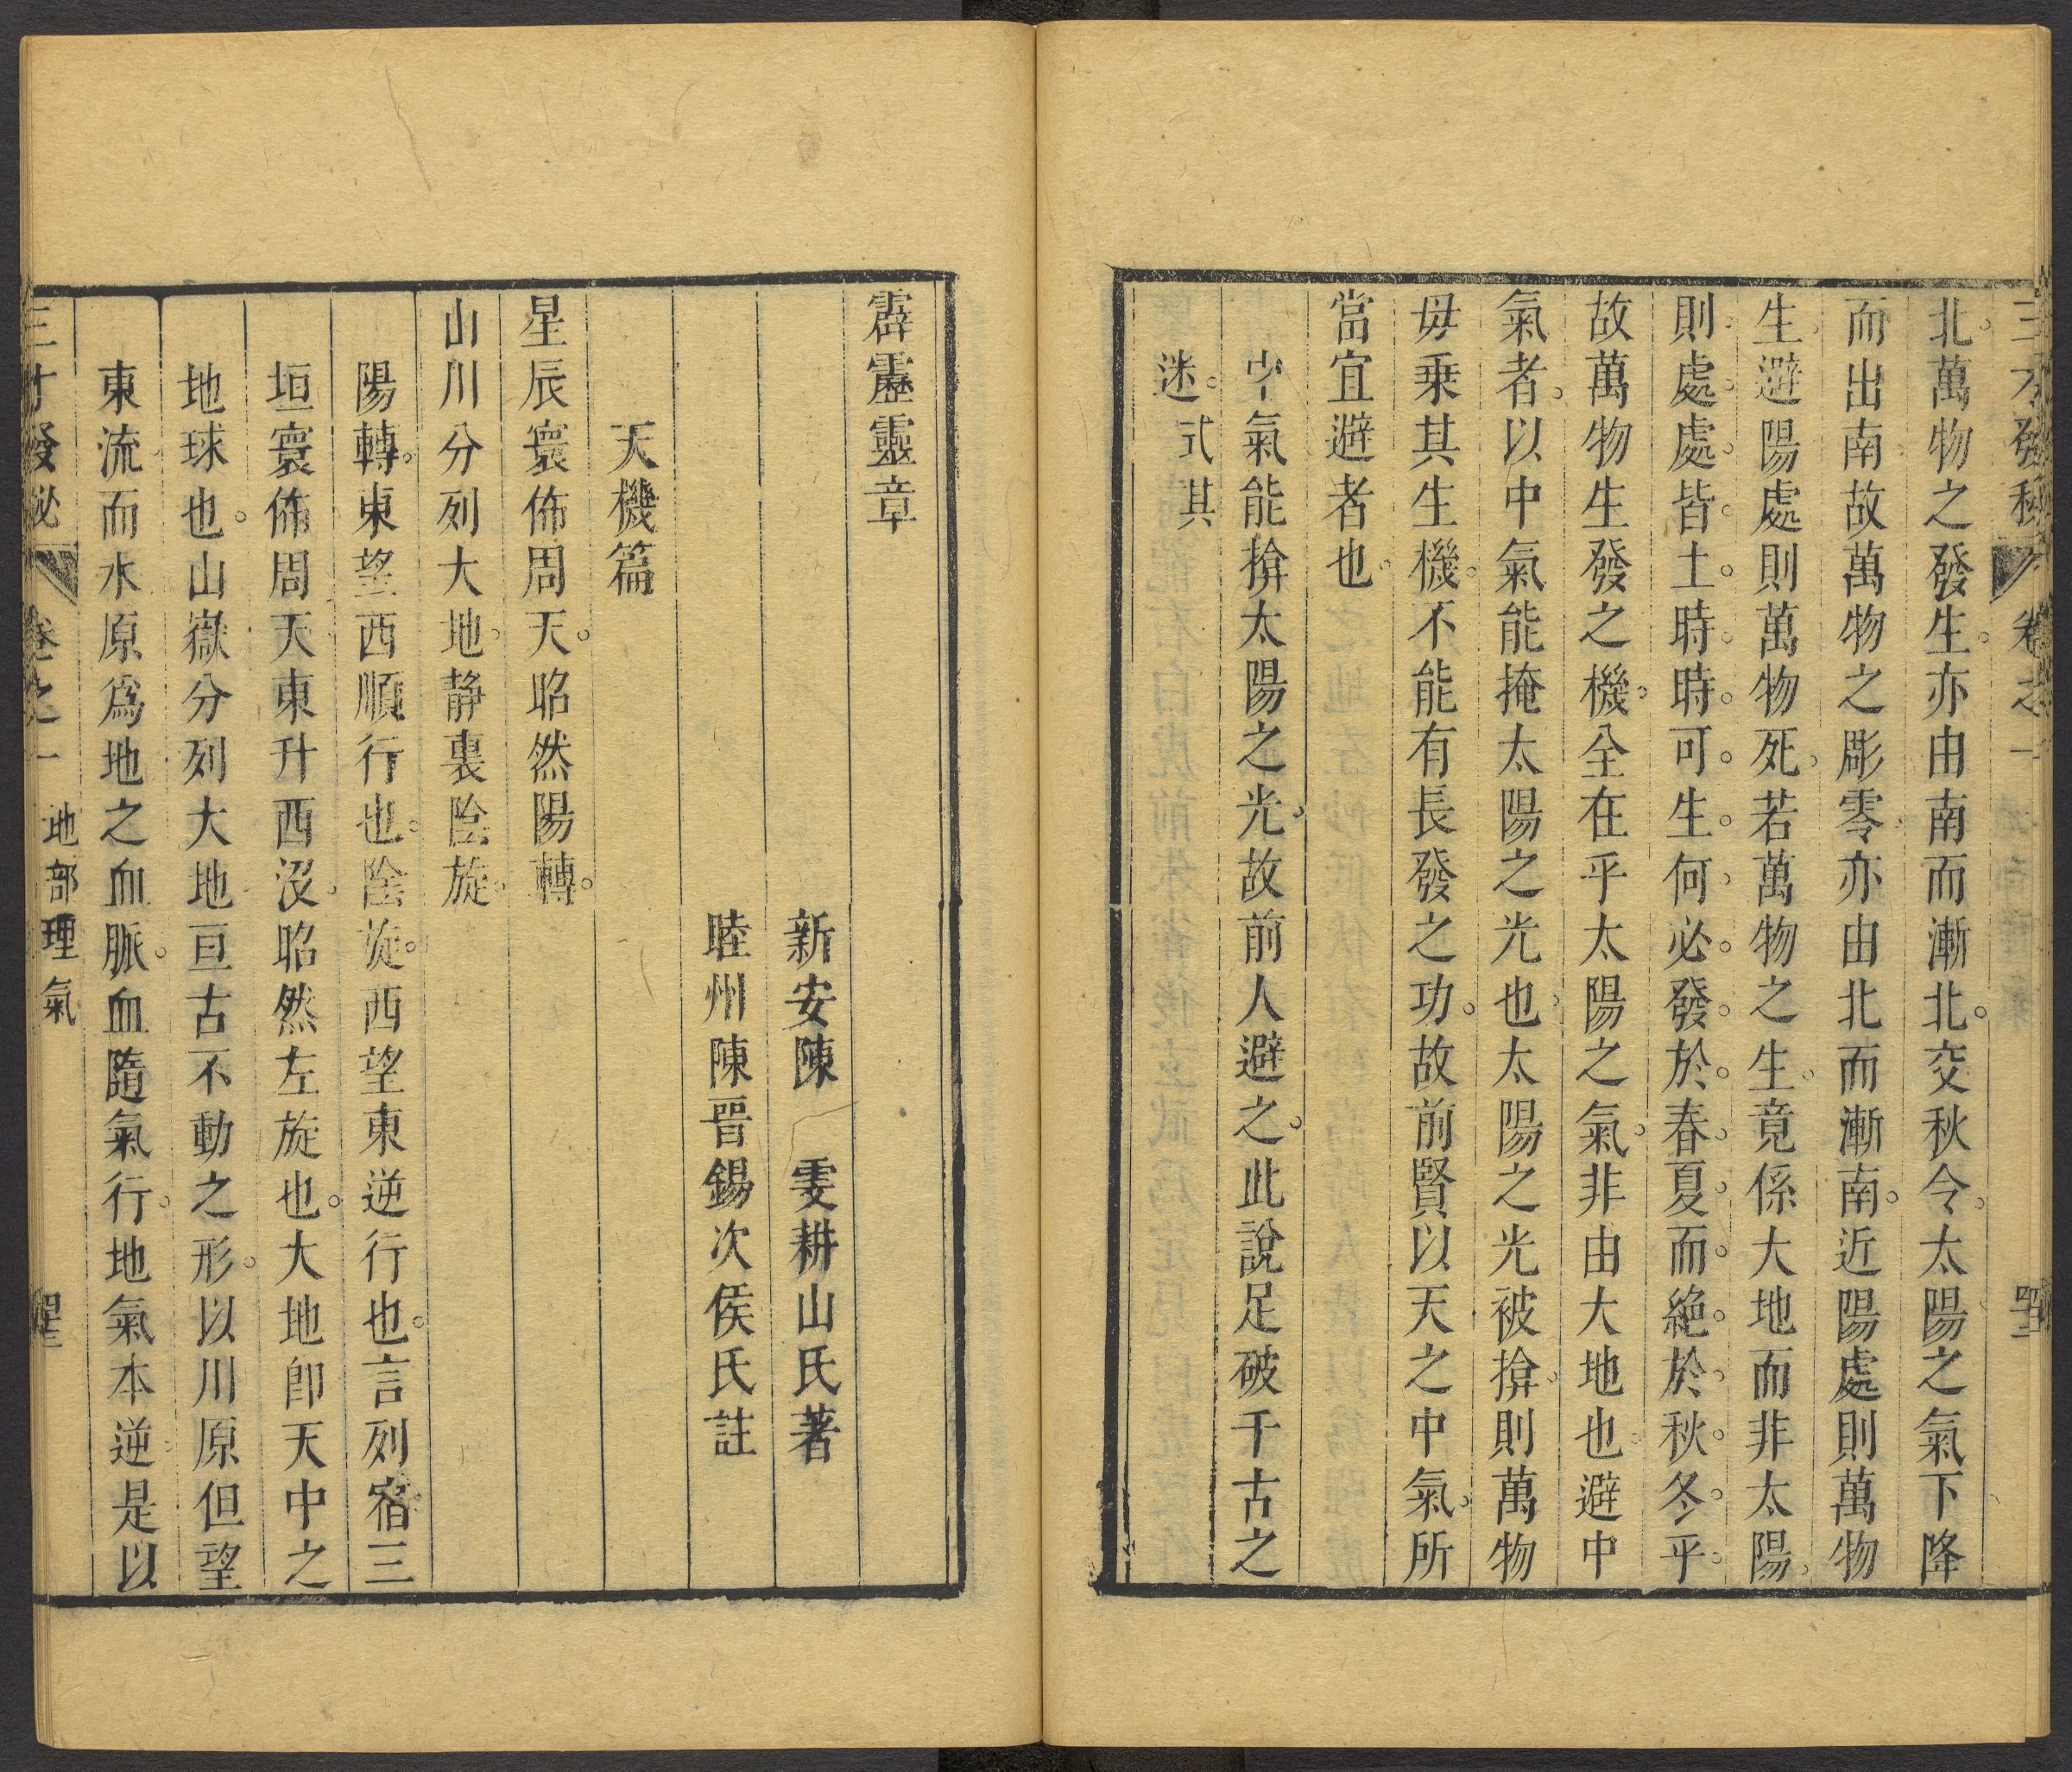 三才發秘 卷之一
北萬物之發生亦由南而漸北交秋令太陽之氣下降
而出南故萬物之彫零亦由北而漸南近陽處則萬物
生避陽處則萬物死若萬物之生竟係大地而非太陽
則處處皆土時時可生何必發於春夏而絶於秋冬乎
故萬物生發之機全在乎太陽之氣非由大地也避中
氣者以中氣能掩太陽之光也太陽之光被揜則萬物
毋乗其生機不能有長發之功故前賢以天之中氣所
當宜避者也
中氣能揜太陽之光故前人避之此說足破千古之
迷
式其
霹靂靈章
新安陳 雯耕山氏著
睦州陳晋錫次侯氏註
天機篇
星辰寰佈周天昭然陽轉
山川分列大地静裏陰旋
陽轉東望西順行也陰旋西望東逆行也言列宿三
垣寰佈周天東升西沒昭然左旋也大地即天中之
地球也山嶽分列大地亘古不動之形以川原但望
東流而水原為地之血脈血隨氣行地氣本逆是以
三才發秘 卷之一 地部理氣